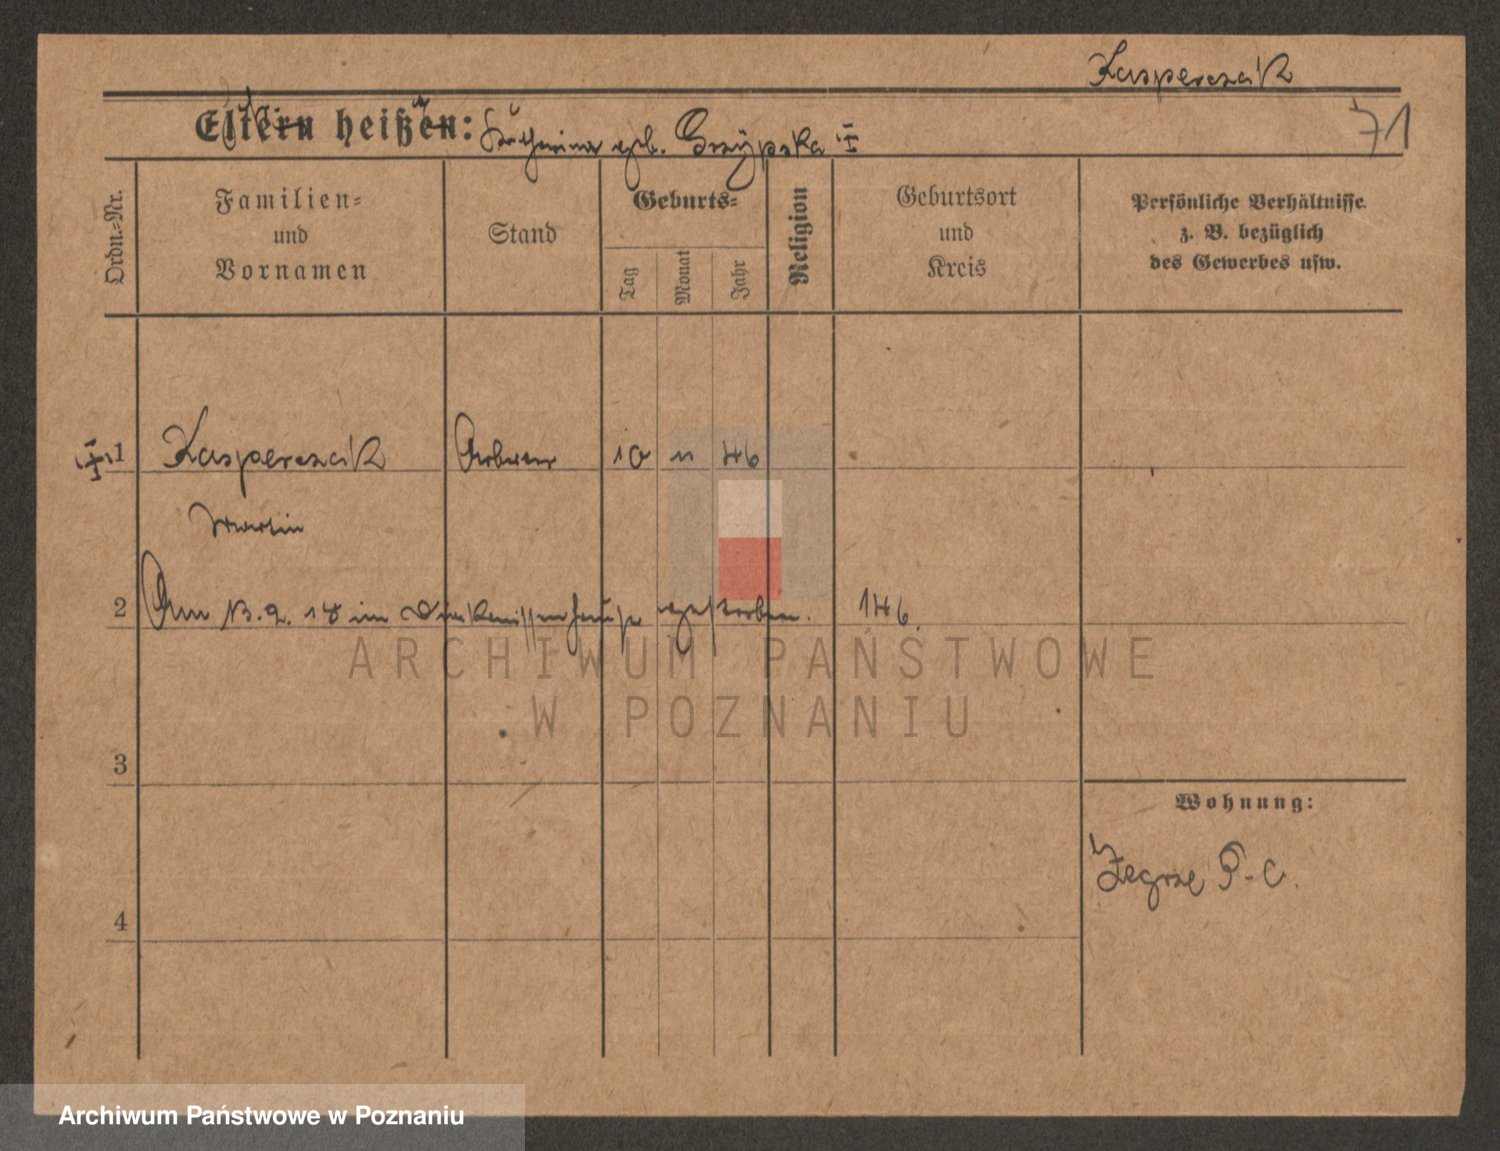 Kasperczak
71
Eltern heißen: Katharina geb. Grzypska
Ordn.-Nr.
Familien-
und
Vornamen
Stand
Geburts-
Tag
Monat
Jahr
Religion
Geburtsort
und
Kreis
Persönliche Verhältnisse
z. B. bezüglich
des Gewerbes usw.
1 Kasperczak 10 11 46
Martin
2 Am 13.2. 18 im Diakonissenhause gestorben. 146.
3
4
Wohnung:
Zegrze P-C.
ARCHIWUM PAŃSTWOWE
W POZNANIU
Archiwum Państwowe w Poznaniu